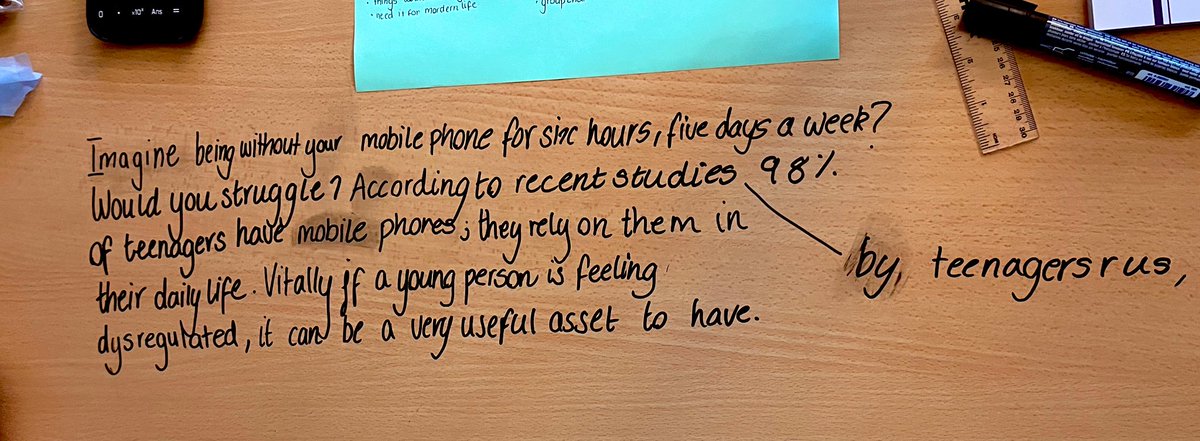 0 · ×10ˣ Ans =
• need it for mordern life
Imagine being without your mobile phone for six hours, five days a week?
Would you struggle? According to recent studies 98%
of teenagers have mobile phones; they rely on them in
by, teenagers r us,
their daily life. Vitally if a young person is feeling
dysregulated, it can be a very useful asset to have.